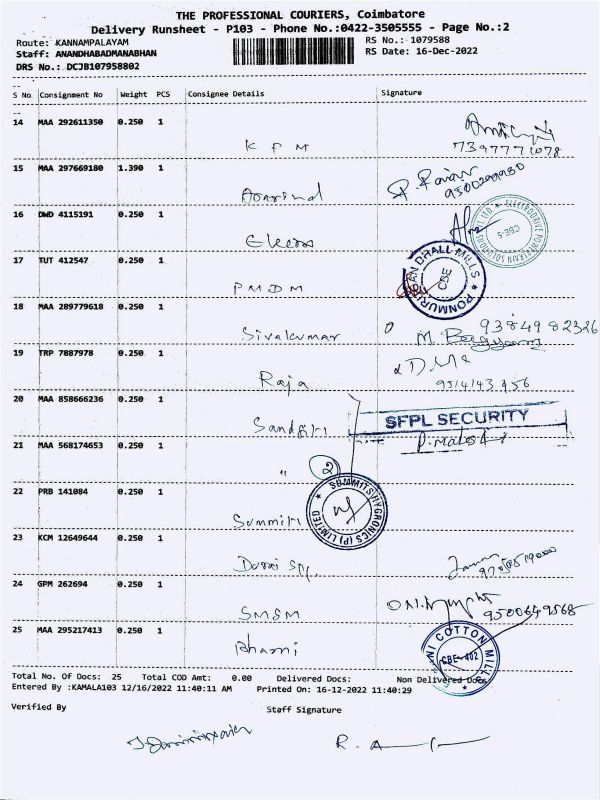 THE PROFESSIONAL COURIERS, Coimbatore
Delivery Runsheet - P103 - Phone No.:0422-3505555 - Page No.:2
Route: KANNAMPALAYAM RS No.: 1079588
Staff: ANANDHABADMANABHAN RS Date: 16-Dec-2022
DRS No.: DCJB107958802
S No Consignment No Weight PCS Consignee Details Signature
14 MAA 292611350 0.250 1
K P M 7397771078
15 MAA 297669180 1.390 1
Aravind
16 DWD 4115191 0.250 1
ELECTRODRIVE POWERTRAIN SOLUTIONS
17 TUT 412547 0.250 1
P M D M PONMURUGAN DHALL MILLS CBE
18 MAA 289779618 0.250 1
Sivakumar 9384982326
19 TRP 7887978 0.250 1
Raja
20 MAA 858666236 0.250 1
SFPL SECURITY
21 MAA 568174653 0.250 1
" 2
22 PRB 141084 0.250 1
SUMMITS HYGRONICS (P) LIMITED
23 KCM 12649644 0.250 1
24 GPM 262694 0.250 1
SMSM 9500649568
25 MAA 295217413 0.250 1
COTTON MILLS CBE-402
Total No. Of Docs: 25 Total COD Amt: 0.00 Delivered Docs: Non Delivered Docs
Entered By :KAMALA103 12/16/2022 11:40:11 AM Printed On: 16-12-2022 11:40:29
Verified By Staff Signature